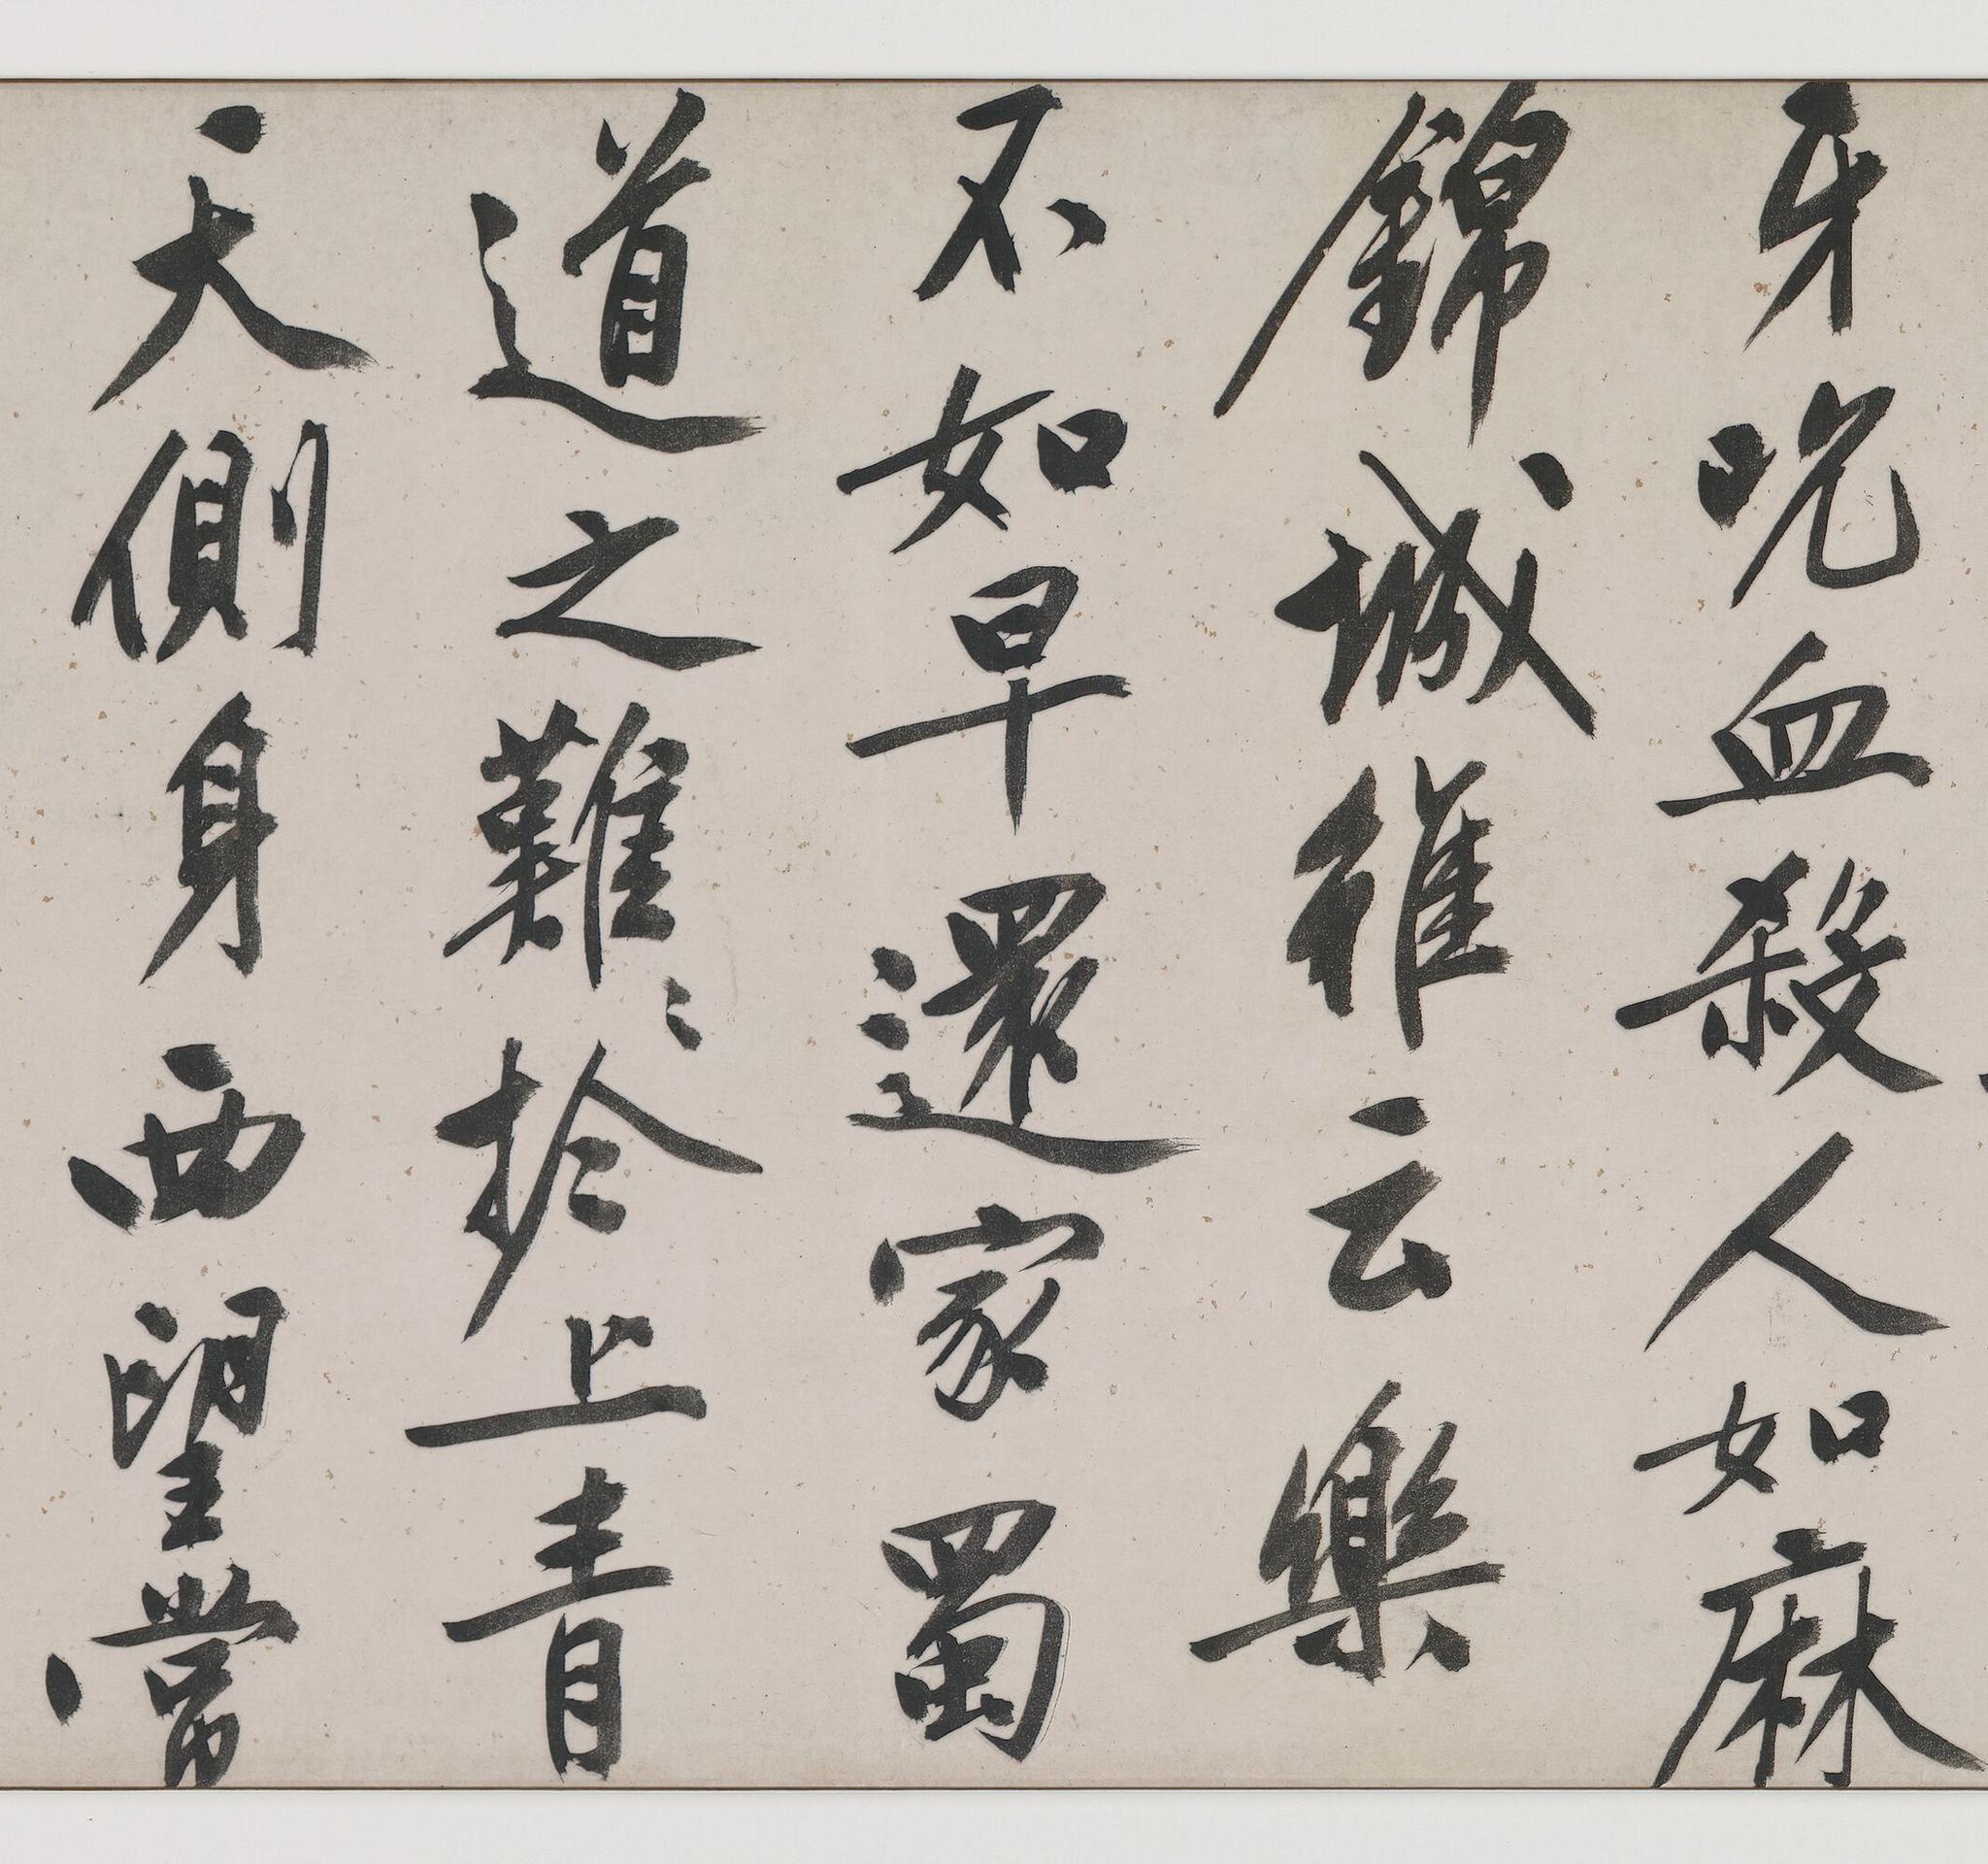 牙吮血殺人如麻
錦城雖云樂
不如早還家蜀
道之難〻於上青
天側身西望常